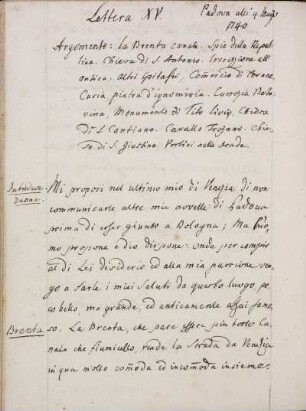 Lettera XV.
Padova alli 4 Maggio
1740
Argomento: La Brenta canale. Spie della Repub-
lica. Chiesa di S. Antonio. Iscrizione all'
antica. Altri Epitafii. Comercio di Ebrane.
Curia, pietra d'ignominia. Lucrezia Padoa-
vina, Monumento di Tito Livio. Chiesa
di S. Cantiano. Cavallo Trojano. Chie-
sa di S. Giustina. Portici nelle strade.
Introduz-
zione.
Mi proposi nel ultimo mio di Venezia di non
communicarle altre mie novelle di Padova
prima di esser giunto a Bologna; Ma l'uo-
mo propone e dio dispone: onde per compire
al di Lei desiderio ed alla mia passione ven-
go a farle i miei saluti da questo luogo, po-
co bello, ma grande, ed anticamente assai famo-
so. La Brenta, che pare essere più tosto Ca-
Brenta
nale che fiumicello, rende la strada da Venezia
in qua molto comoda ed incomoda insieme.